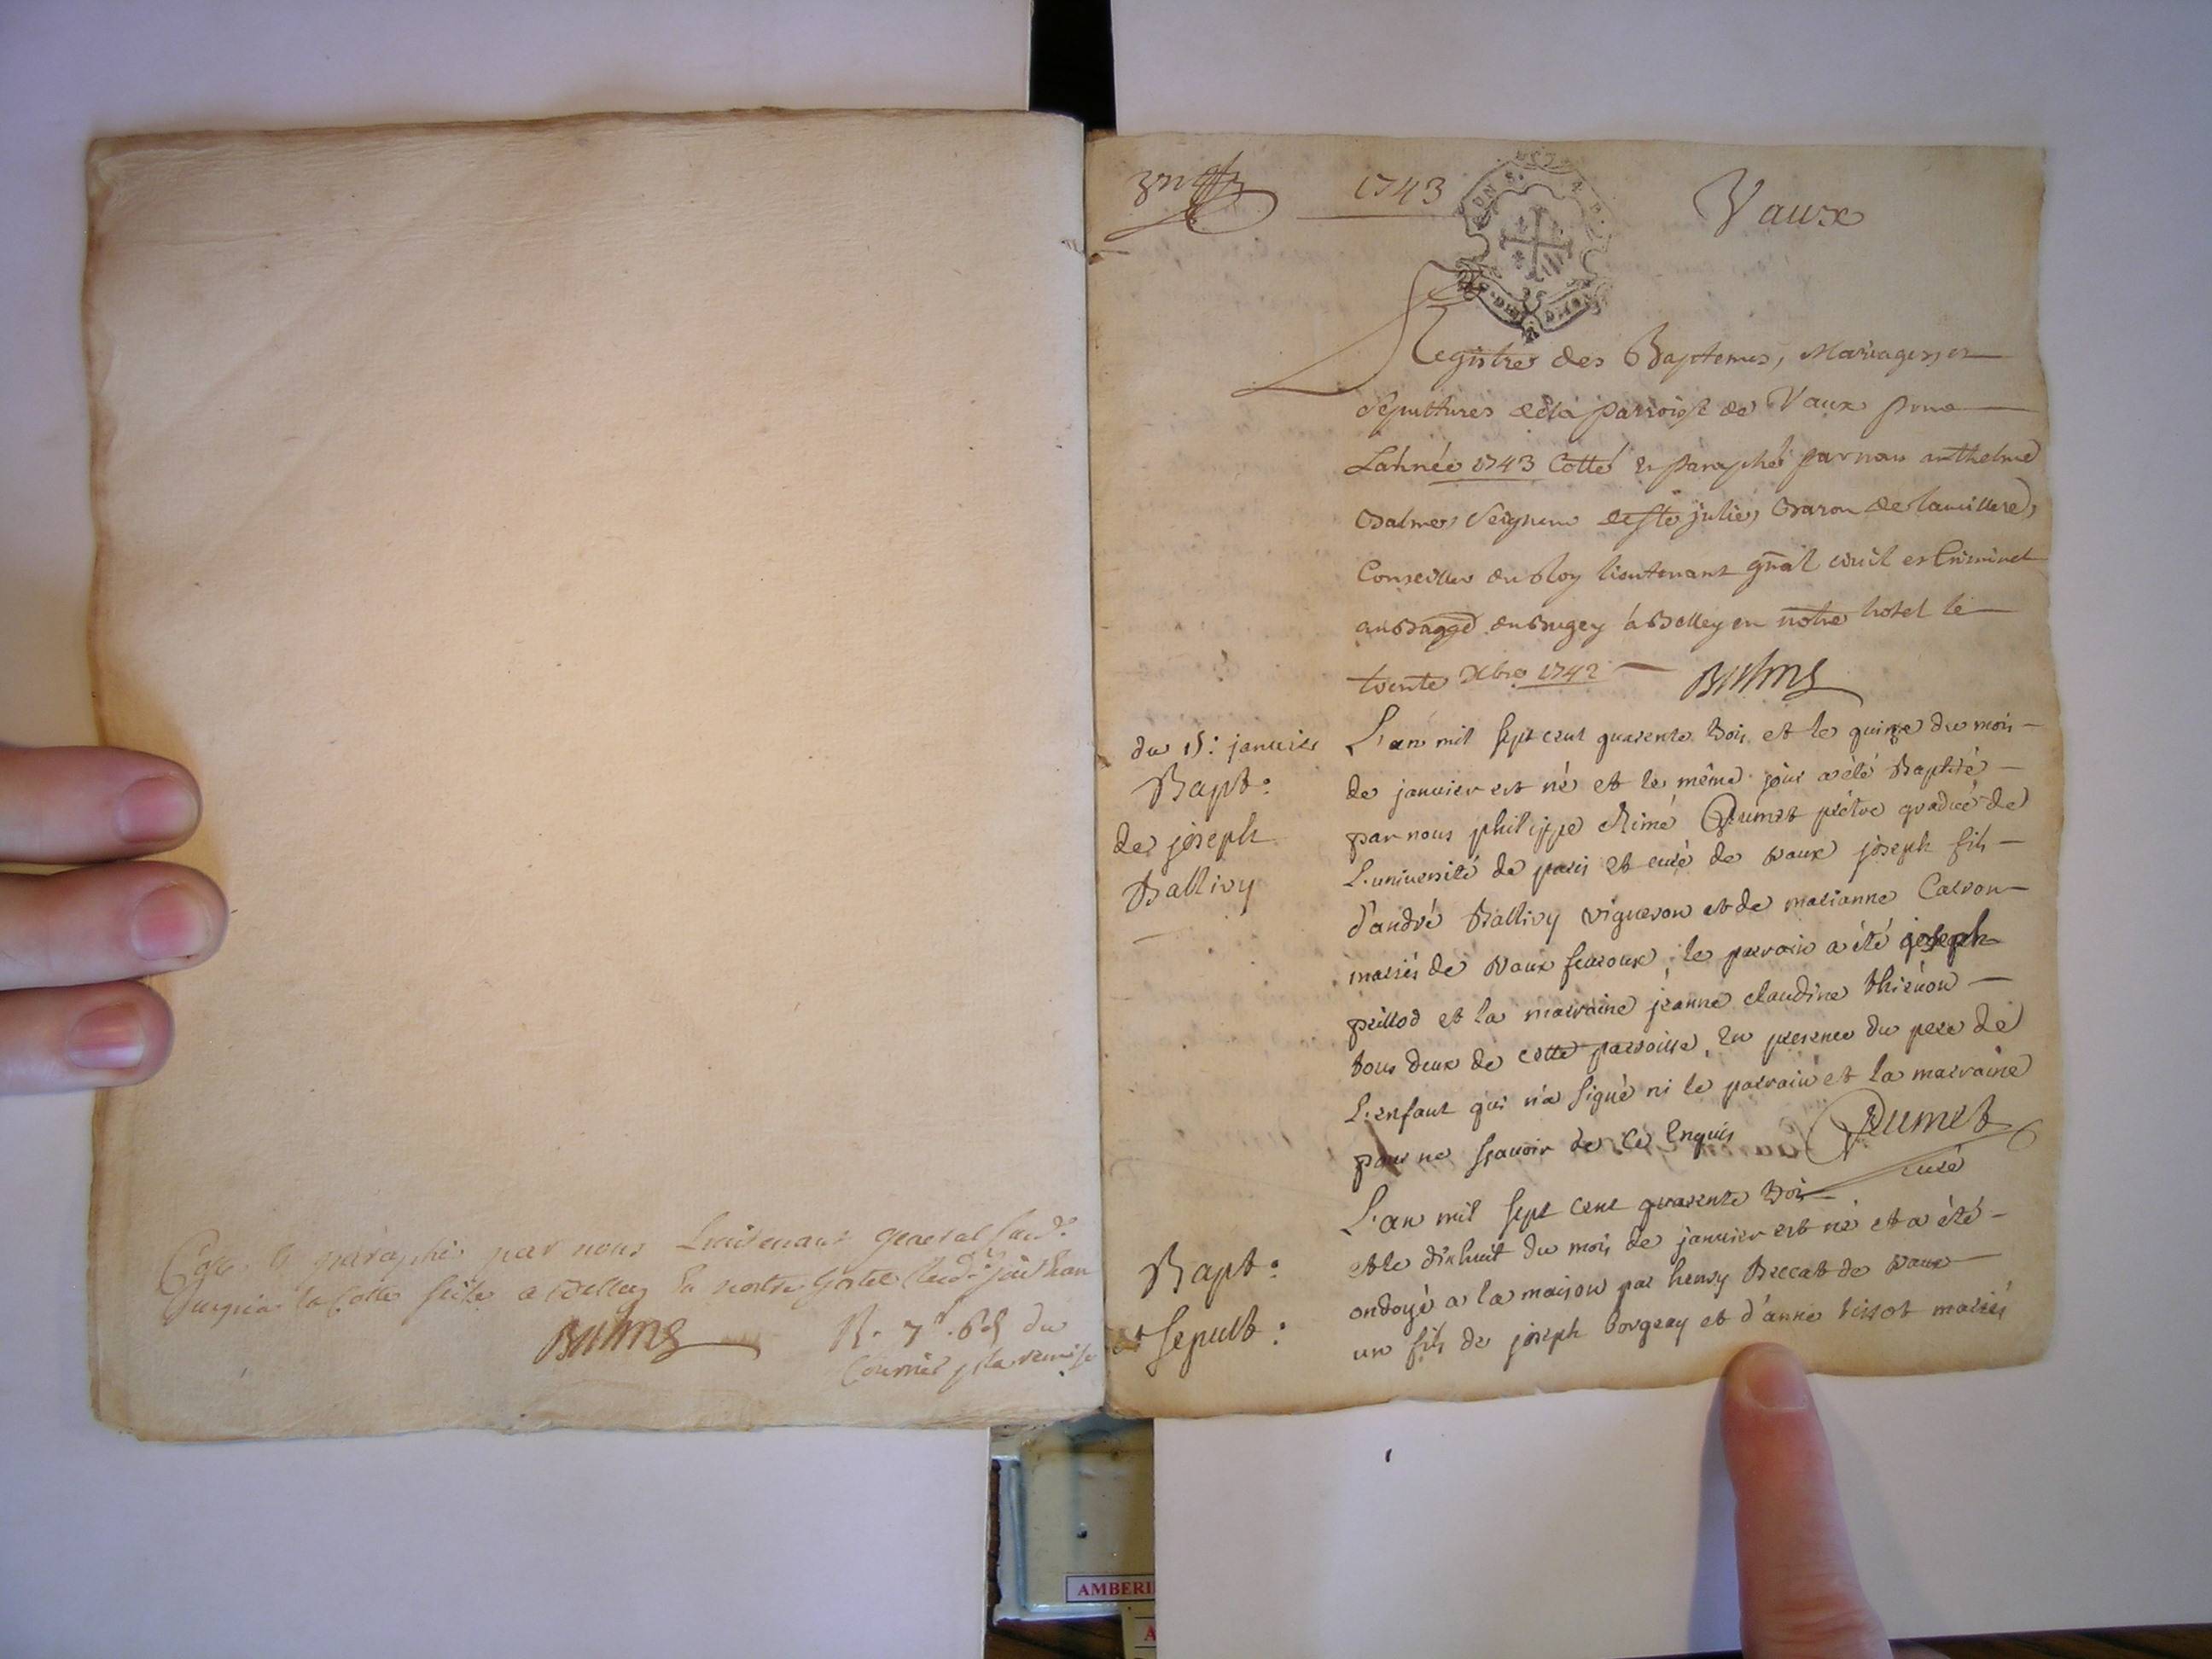 Cotté et paraphé par nous Lieutenant general susd.
jusques la Cotte fiste a Belley En nostre hostel
Balme
R. 7 du
Courrier p la remise
1743
Vaux
Registre des Baptemes, Mariages, et
Sepultures de la parroisse de Vaux pour
L'année 1743 Cotté et paraphé par nous anthelme
Balme, Seigneur de Ste julie, Baron de
Conseiller du Roy lieutenant gñal civil et Criminel
au Bagge du Bugey à Belley en notre hotel le
trente Xbre 1742
Balme
du 15: janvier
Bapt:
de joseph
Ballivy
L'an mil sept cent quarente trois et le quinze du mois
de janvier est né et le même jour a été Baptisé
par nous philippe Aimé Dumet prêtre gradué de
L'université de paris et curé de vaux joseph fils
d'andré Ballivy vigneron et de marianne Carron
mariés de vaux fevroux, le parrain a été joseph
prillod et la marraine jeanne claudine thiénon
tous deux de cette parroisse, En presence du pere de
L'enfant qui n'a signé ni le parrain et la marraine
pour ne sçavoir de ce Enquis
Dumet
curé
Bapt:
et sepult:
L'an mil sept cent quarente trois
et le dixhuit du mois de janvier est né et a été
ondoyé a la maison par henry Beccat de vaux
un fils de joseph Borgeay et d'anne tissot mariés
AMBERI
A